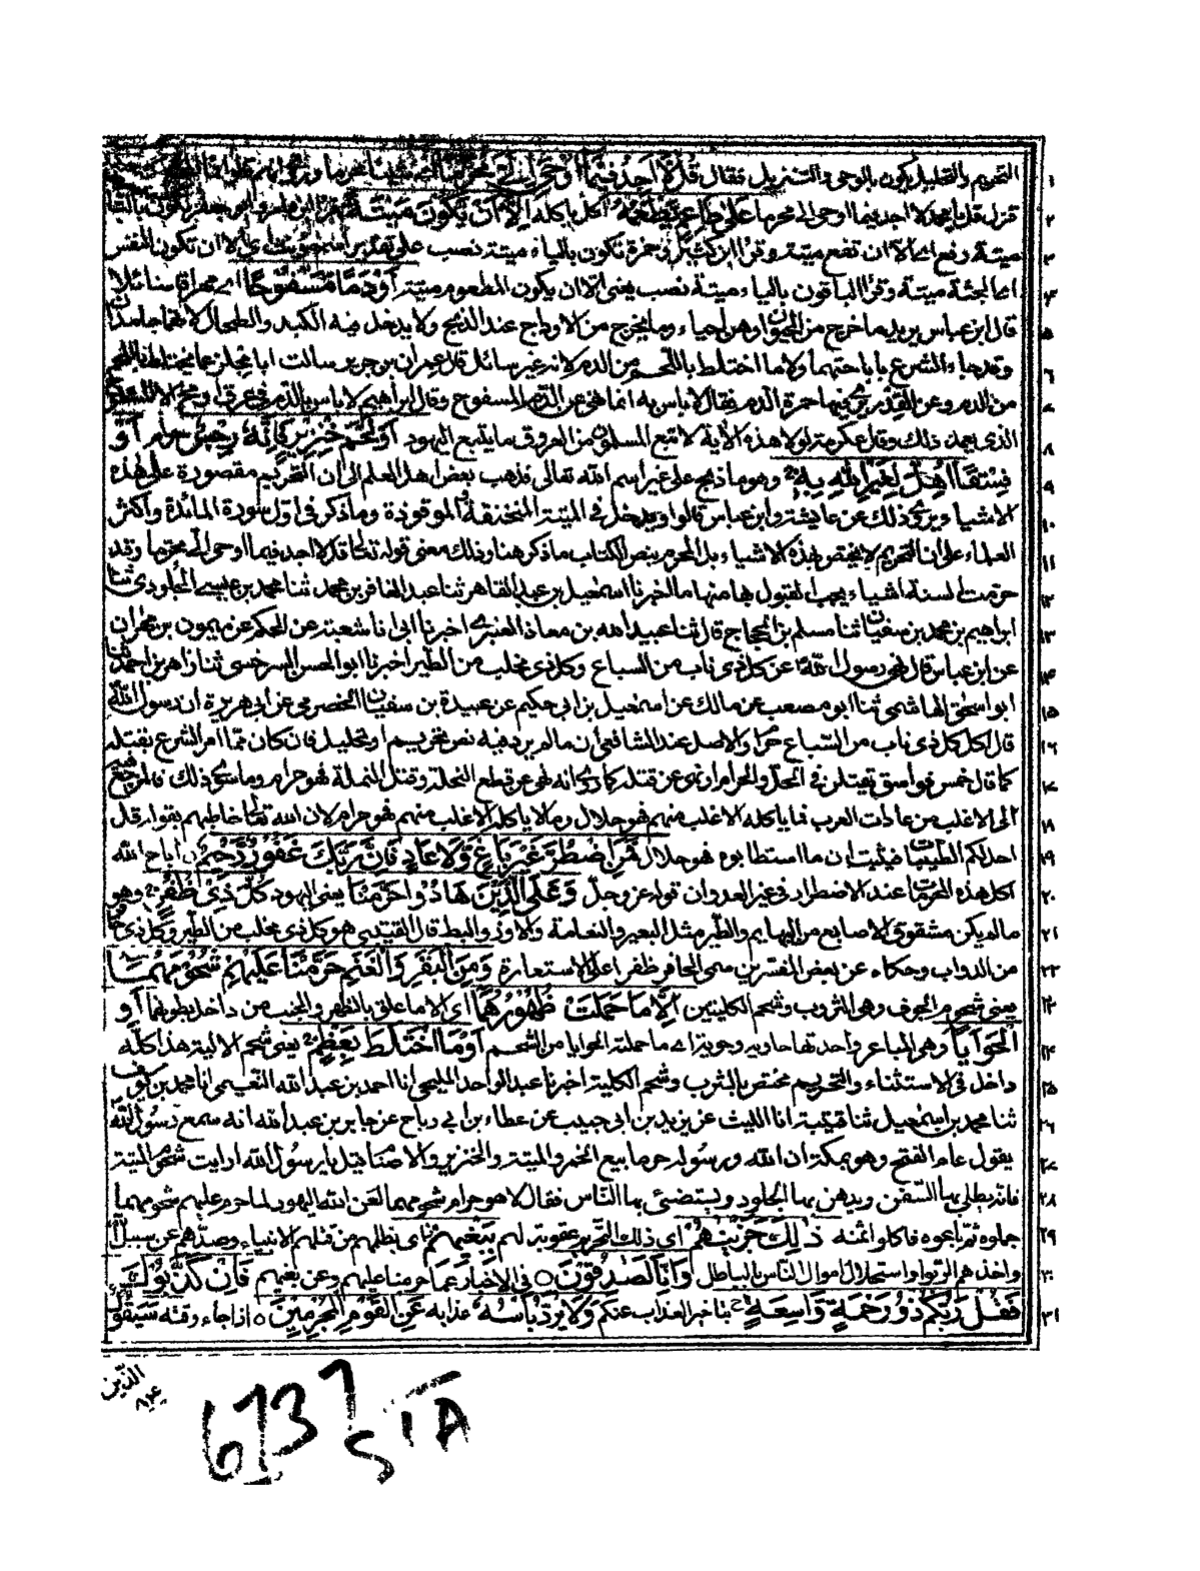 التحريم والتحليل يكون بالوحي والتنزيل فقال قُلْ لَّا أَجِدُ فِيمَا أُوحِيَ إِلَيَّ مُحَرَّمًا
فنزل قل يا محمد لا اجد فيما اوحي الي محرما عَلَىٰ طَاعِمٍ يَّطْعَمُهٗ اكل ياكله إِلَّا أَنْ يَّكُونَ مَيْتَةً
ميتة رفع اي الا ان تقع ميتة وقرا ابن كثير وحمزة تكون بالتاء ميتة نصب على تقدير اسم مؤنث اي الا ان تكون النفس
او الجثة ميتة وقرا الباقون يكون بالياء ميتة نصب يعني الا ان يكون المطعوم ميتة أَوْ دَمًا مَّسْفُوحًا اي مهراقا سائلا
قال ابن عباس يريد ما خرج من الحيوان وهن احياء وما يخرج من الاوداج عند الذبح ولا يدخل فيه الكبد والطحال لانهما جامدان
وقد جاء الشرع باباحتهما ولا ما اختلط باللحم من الدم لانه غير سائل قال عمران بن جرير سالت ابا مجلز عما يختلط باللحم
من الدم وعن القدر يرى فيها حمرة الدم فقال لا باس به انما نهى عن الدم المسفوح وقال ابراهيم لا باس بالدم في عرق او مخ الا المسفوح
الذي يعمد ذلك وقال عكرمة لولا هذه الاية لاتبع المسلمون من العروق ما يتبع اليهود أَوْ لَحْمَ خِنْزِيرٍ فَإِنَّهٗ رِجْسٌ حرام أَوْ
فِسْقًا أُهِلَّ لِغَيْرِ اللّٰهِ بِهٖ وهو ما ذبح على غير اسم الله تعالى فذهب بعض اهل العلم الى ان التحريم مقصورة على هذه
الاشياء ويروى ذلك عن عايشة وابن عباس قالوا ويدخل في الميتة المنخنقة والموقوذة وما ذكر في اول سورة المائدة واكثر
العلماء على ان التحريم لا يختص بهذه الاشياء بل المحرم بنص الكتاب ما ذكر هنا وذلك معنى قوله تعالى قل لا اجد فيما اوحي الي محرما وقد
حرمت السنة اشياء يجب القبول بها منها ما اخبرنا اسمعيل بن عبد القاهر ثنا عبد الغافر بن محمد ثنا محمد بن عيسى الجلودي ثنا
ابراهيم بن محمد بن سفيان ثنا مسلم بن الحجاج قال ثنا عبيد الله بن معاذ العنبري اخبرنا ابي انا شعبة عن الحكم عن ميمون بن مهران
عن ابن عباس قال نهى رسول الله عن كل ذي ناب من السباع وكل ذي مخلب من الطير اخبرنا ابو الحسن السرخسي ثنا زاهر بن احمد ثنا
ابو اسحق الهاشمي ثنا ابو مصعب عن مالك عن اسمعيل بن ابي حكيم عن عبيدة بن سفيان الحضرمي عن ابي هريرة ان رسول الله
قال اكل كل ذي ناب من السباع حرام والاصل عند الشافعي ان ما لم يرد فيه نص تحريم او تحليل فان كان مما امر الشرع بقتله
كما قال خمس فواسق يقتلن في الحل والحرم او نهى عن قتله كما روي انه نهى عن قتل النحلة وقتل النملة فهو حرام وما سوى ذلك فالمرجع فيه
الى الاغلب من عادات العرب فما ياكله الاغلب منهم فهو حلال وما لا ياكله الاغلب منهم فهو حرام لان الله تعالى خاطبهم بقوله قل
احل لكم الطيبات فثبت ان ما استطابوه فهو حلال فَمَنِ اضْطُرَّ غَيْرَ بَاغٍ وَّلَا عَادٍ فَإِنَّ رَبَّكَ غَفُورٌ رَّحِيمٌ اباح الله
اكل هذه المحرمات عند الاضطرار في غير العدوان قوله عز وجل وَعَلَى الَّذِينَ هَادُوا حَرَّمْنَا يعني اليهود كُلَّ ذِي ظُفُرٍ وهو
ما لم يكن مشقوق الاصابع من البهايم والطير مثل البعير والنعامة والاوز والبط قال القتيبي هو كل ذي مخلب من الطير وكل ذي حافر
من الدواب وحكاه عن بعض المفسرين سمى الحافر ظفرا على الاستعارة وَمِنَ الْبَقَرِ وَالْغَنَمِ حَرَّمْنَا عَلَيْهِمْ شُحُومَهُمَا
يعني شحوم الجوف وهي الثروب وشحم الكليتين إِلَّا مَا حَمَلَتْ ظُهُورُهُمَا اي الا ما علق بالظهر والجنب من داخل بطونهما أَوِ
الْحَوَايَا وهي المباعر واحدتها حاوية وحوية اي ما حملته الحوايا من الشحم أَوْ مَا اخْتَلَطَ بِعَظْمٍ يعني شحم الالية هذا كله
داخل في الاستثناء والتحريم مختص بالثرب وشحم الكلية اخبرنا عبد الواحد المليحي انا احمد بن عبد الله النعيمي انا محمد بن يوسف
ثنا محمد بن اسمعيل ثنا قتيبة انا الليث عن يزيد بن ابي حبيب عن عطاء بن ابي رباح عن جابر بن عبد الله انه سمع رسول الله
يقول عام الفتح وهو بمكة ان الله ورسوله حرم بيع الخمر والميتة والخنزير والاصنام فقيل يا رسول الله ارايت شحوم الميتة
فانه يطلى بها السفن ويدهن بها الجلود ويستضئ بها الناس فقال لا هو حرام لعن الله اليهود لما حرم عليهم شحومهما
جملوه ثم باعوه فاكلوا ثمنه ذٰلِكَ جَزَيْنٰهُمْ اي ذلك التحريم عقوبة لهم بِبَغْيِهِمْ اي بظلمهم من قتلهم الانبياء وصدهم عن سبيل الله
واخذهم الربوا واستحلال اموال الناس بالباطل وَإِنَّا لَصٰدِقُونَ في الاخبار عما حرمنا عليهم وعن بغيهم فَإِنْ كَذَّبُوكَ
فَقُلْ رَّبُّكُمْ ذُو رَحْمَةٍ وَّاسِعَةٍ بتاخير العذاب عنكم وَلَا يُرَدُّ بَأْسُهٗ عذابه عَنِ الْقَوْمِ الْمُجْرِمِينَ اذا جاء وقته سَيَقُولُ
الَّذِينَ